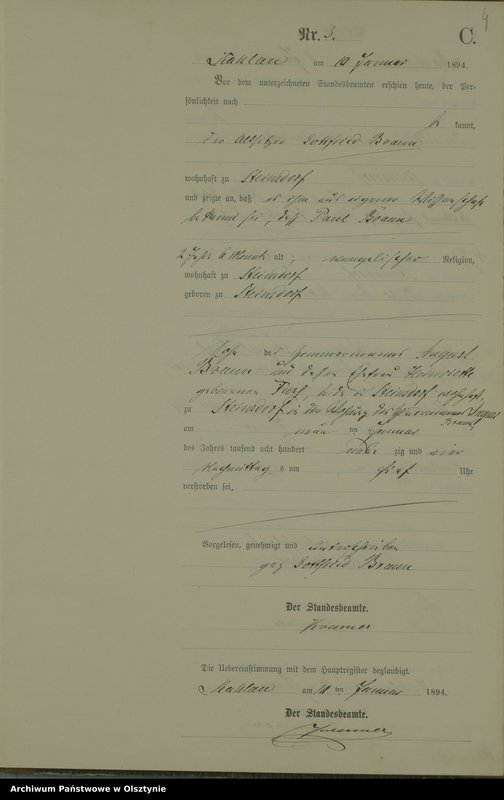 4
Nr. 3. C.
Maklau am 10 Januar 1894.
Vor dem unterzeichneten Standesbeamten erschien heute, der Per-
sönlichkeit nach
kannt,
der Altsitzer Gottfried Braun
wohnhaft zu Steinsdorf
und zeigte an, daß es ihm aus eigener Wissenschaft
bekannt sei, daß Paul Braun
2 Jahre 6 Monate alt, evangelischer Religion,
wohnhaft zu Steinsdorf
geboren zu Steinsdorf
Sohn des Zimmermanns August
Braun und dessen Ehefrau Henriette
geborenen, beide in Steinsdorf wohnhaft,
zu Steinsdorf in der Wohnung des Zimmermanns August
Braun
am neun ten Januar
des Jahres tausend acht hundert neun zig und vier
Nachmittag s um fünf Uhr
verstorben sei.
Vorgelesen, genehmigt und unterschrieben
gez Gottfried Braun
Der Standesbeamte.
Die Uebereinstimmung mit dem Hauptregister beglaubigt.
Maklau am 10 ten Januar 1894.
Der Standesbeamte.
Archiwum Państwowe w Olsztynie